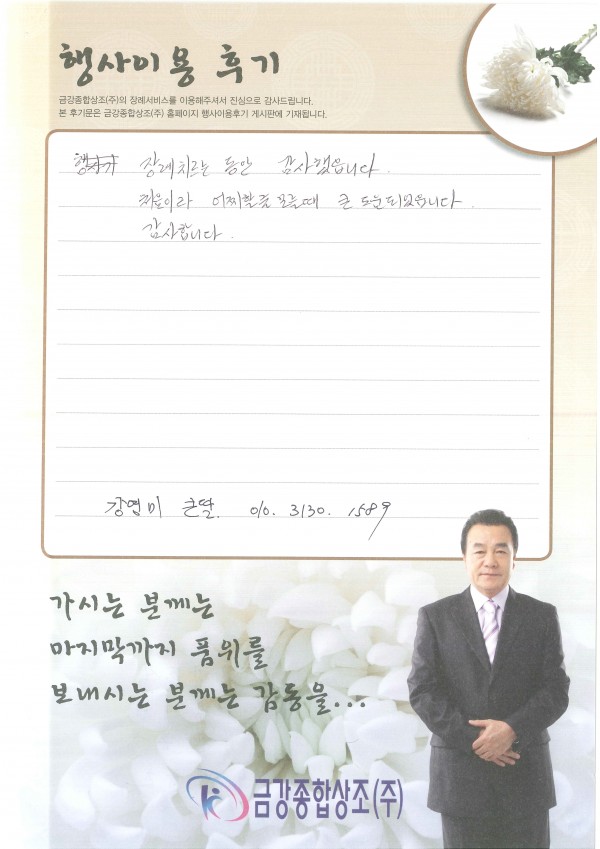 행사이용 후기
금강종합상조(주)의 장례서비스를 이용해주셔서 진심으로 감사드립니다.
본 후기문은 금강종합상조(주) 홈페이지 행사이용후기 게시판에 기재됩니다.
장례치르는 동안 감사했습니다.
처음이라 어찌할줄 모를때 큰 도움되었습니다.
감사합니다.
강엽미 큰딸. 010. 3130. 1589
가시는 분께는
마지막까지 품위를
보내시는 분께는 감동을...
금강종합상조(주)